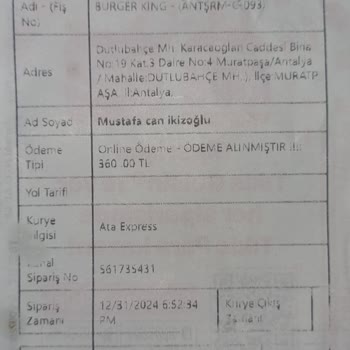 Adı - (Fiş No)
BURGER KING - (ANTŞRM-G093)
Adres
Dutlubahçe Mh. Karacaoğlan Caddesi Bina
No:19 Kat:3 Daire No:4 Muratpaşa/Antalya
/ Mahalle:DUTLUBAHÇE MH.), İlçe:MURATP
AŞA, İl:Antalya.
Ad Soyad
Mustafa can ikizoğlu
Ödeme Tipi
Online Ödeme - ÖDEME ALINMIŞTIR !!!
360.00 TL
Yol Tarifi
Kurye
Ata Express
Sipariş No
561735431
Sipariş Zamanı
12/31/2024 6:52:34
PM
Kurye Çıkış